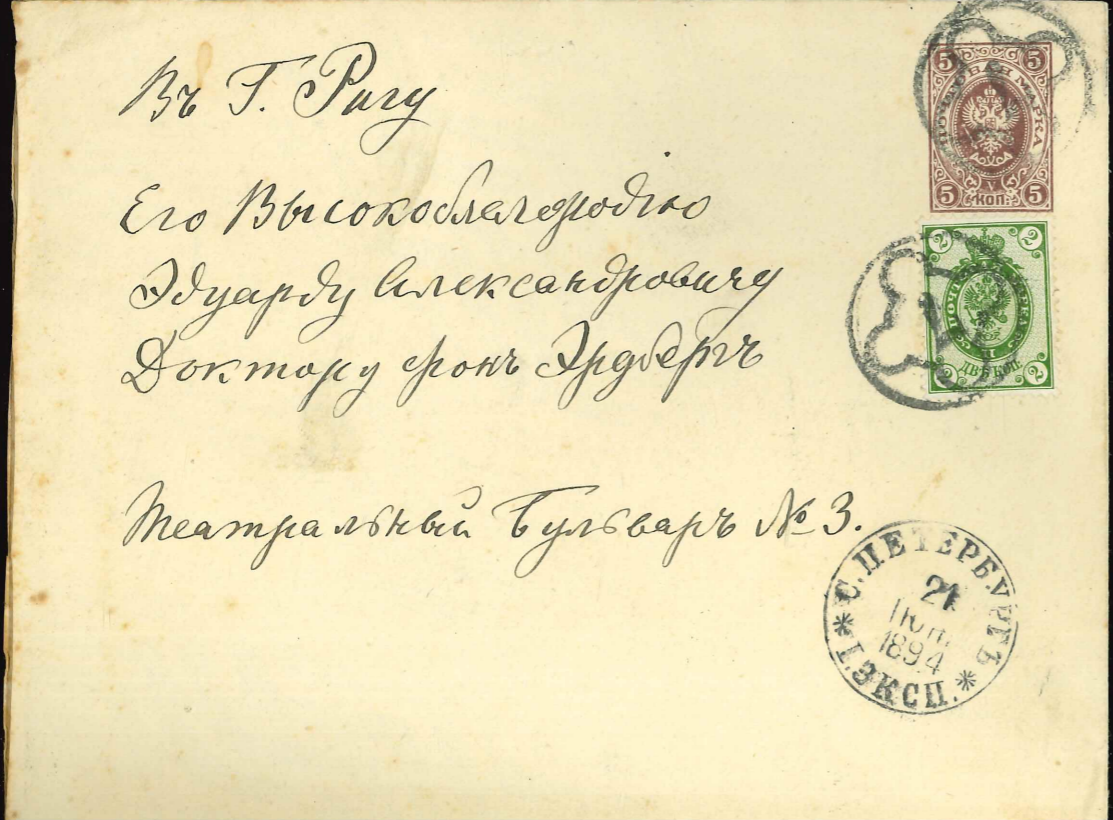 Въ Г. Ригу
Его Высокоблагородію
Эдуарду Александровичу
Доктору фонъ Эрдбергъ
Театральный Бульваръ № 3.
5 5
ПОЧТОВАЯ МАРКА
V
5 КОП. 5
2 2
ПОЧТ. МАРКА
II
2 ДВѢ КОП. 2
С. ПЕТЕРБУРГЪ
21
1894
* I. ЭКСП. *